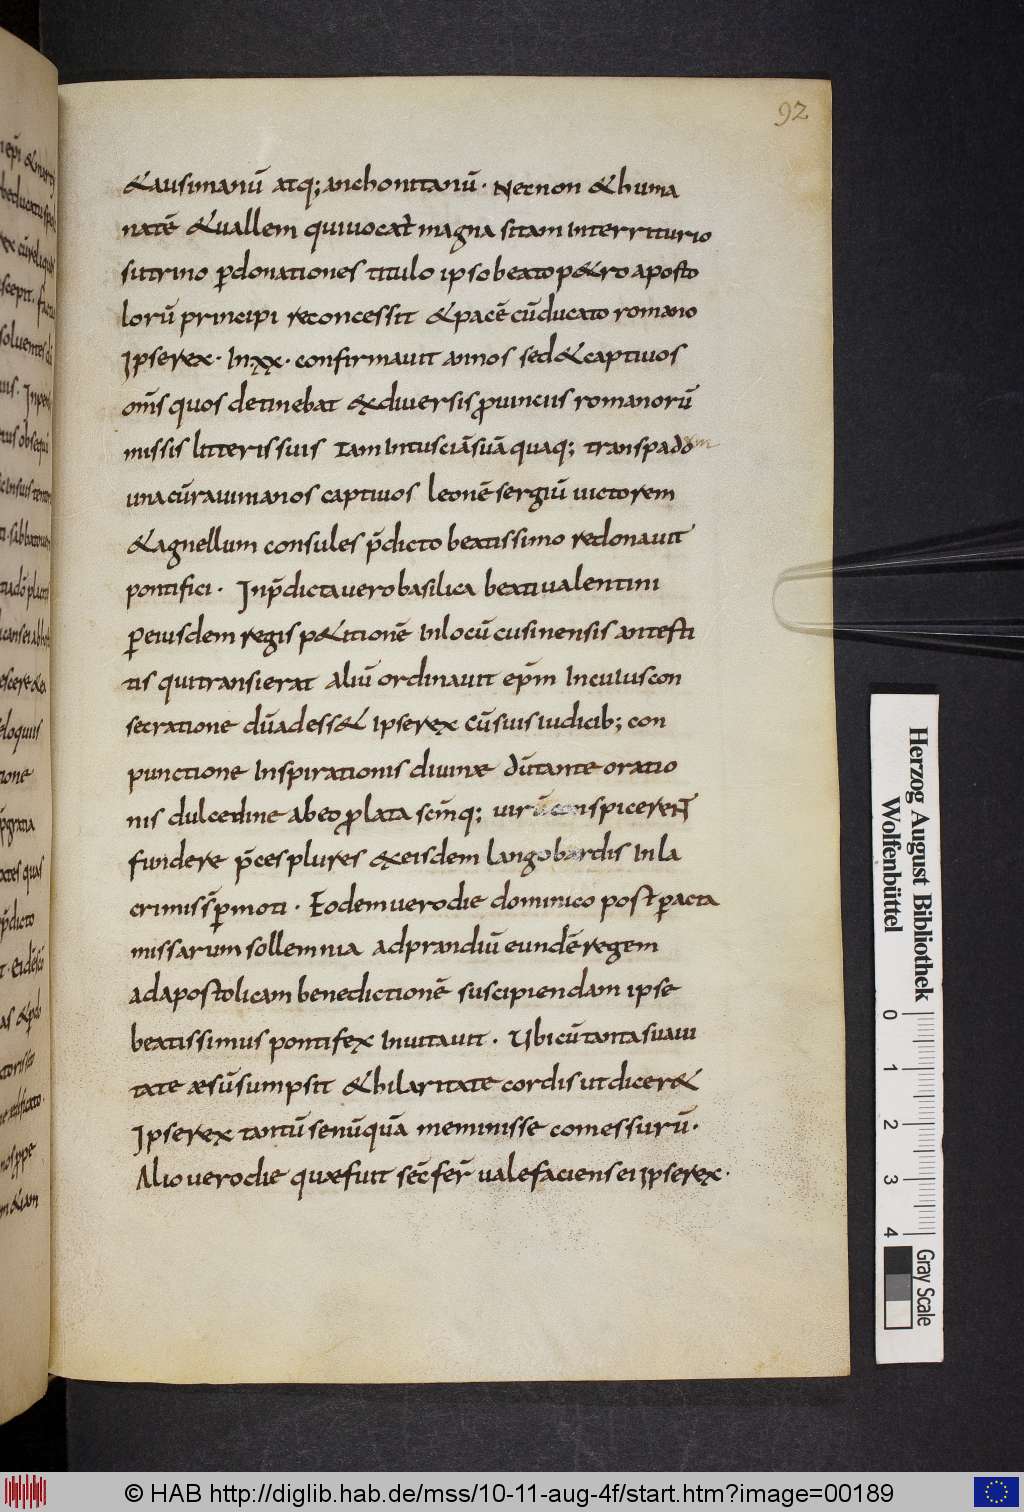 92
&ausimanū atq; anchonitanū · Necnon &huma
natē &uallem quiuocat̄ magna sitam interriturio
sutrino p̄donationes titulo ipso beato p&ro aposto
lorū principi reconcessit &pacē cū ducato romano
Ipse rex · In · xx · confirmauit annos sed &captiuos
om̄s quos detinebat &xdiuersis ꝓuinciis romanorū
missis litteris suis tam intusciā suā quaq; transpadom
una cū rauinnanos captiuos leonē sergiū uictorem
&agnellum consules p̄dicto beatissimo redonauit
pontifici · Inp̄dicta uero basilica beati ualentini
p̄ eiusdem regis p&itionē inlocū cusinensis antesti
tis quitransierat aliū ordinauit ep̄m incuius con
secratione dū adess& ipse rex cū suis iudicib; con
punctione inspirationis diuinæ dūtante oratio
nis dulcedine abeo ꝓlata sc̄mq; uirū conspicerent
fundere p̄ces plures &xeisdem langobardis inla
crimis s̄ p̄moti · Eodem uero die dominico post p̄acta
missarum sollemnia adprandiū eundē regem
adapostolicam benedictionē suscipiendam ipse
beatissimus pontifex inuitauit · Ubi cū tanta suaui
tate æsū sumpsit &hilaritate cordis ut dicer&
Ipse rex tantū se nūquā meminisse comessurū ·
Alio uero die quæ fuit sec̄ fer̄ uale faciens ei ipse rex ·
Herzog August Bibliothek
Wolfenbüttel
0 1 2 3 4
Gray Scale
© HAB http://diglib.hab.de/mss/10-11-aug-4f/start.htm?image=00189